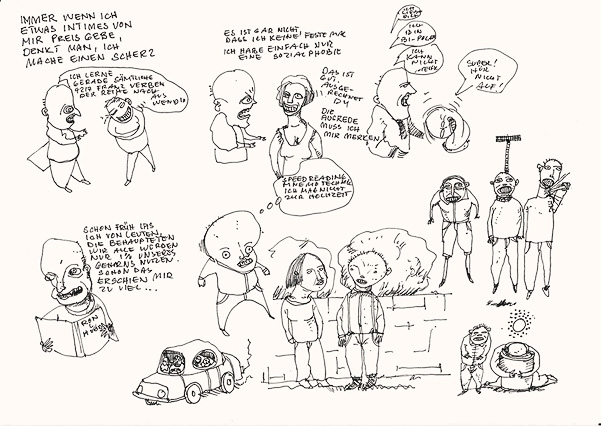 IMMER WENN ICH
ETWAS INTIMES VON
MIR PREIS GEBE,
DENKT MAN, ICH
MACHE EINEN SCHERZ
ICH LERNE
GERADE SÄMTLICHE
FRANZ. VERBEN
DER REIHE NACH
AUSWENDIG
ES IST GAR NICHT,
DASS ICH KEINE FESTE MAG
ICH HABE EINFACH NUR
EINE SOZIALPHOBIE
DAS IST
GUT.
AUSGE-
RECHNET
DU
DIE
AUSREDE
MUSS ICH
MIR MERKEN!
ICH
BIN
BI-POLAR
ICH
KANN
NICHT
SUPER!
NUR
NICHT
AUF!
SPEEDREADING
MNEMOTECHNIK
ICH MAG NICHT
ZUR HOCHZEIT
SCHON FRÜH LAS
ICH VON LEUTEN,
DIE BEHAUPTETEN
WIR ALLE WÜRDEN
NUR 1% UNSERES
GEHIRNS NUTZEN.
SCHON DAS
ERSCHIEN MIR
ZU VIEL...
RON